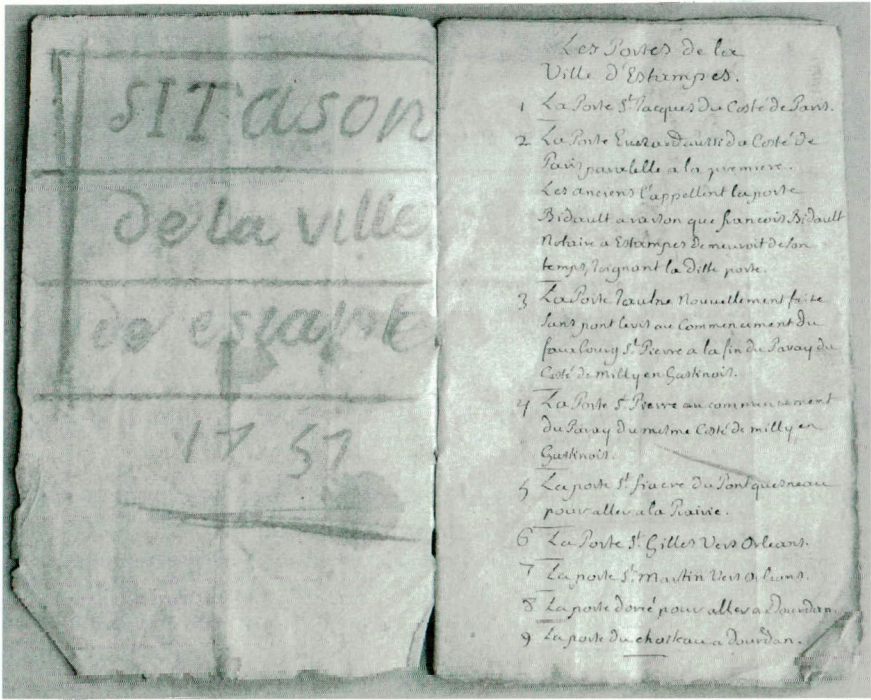 SITason
de la ville
de
17 51
Les Portes de la
Ville d'Estampes.
1 La Porte St. Jacques du Costé de Paris.
2 La Porte Evezard aussi du Costé de
Paris paralelle a la premiere.
Les anciens l'appellent la porte
Bidault a raison que francois Bidault
Notaire a Estampes demeuroit de son
temps joignant la ditte porte.
3 La Porte Nouvellement faite
sans pont levis au Commencement du
faux bourg St. Pierre a la fin du Pavay du
Costé de Milly en Gastinois.
4 La Porte St. Pierre au commencement
du Pavay du mesme Costé de milly en
Gastinois.
5 La porte St. fiacre du Pont quesneau
pour aller a la Prairie.
6 La Porte St. Gilles Vers Orleans.
7 La porte St. Martin Vers orleans.
8 La porte dorré pour aller a Dourdan.
9 La porte du chasteau a Dourdan.